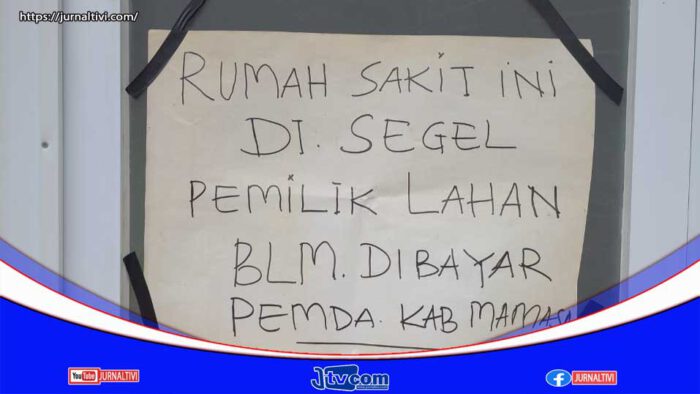 https://jurnaltivi.com/
RUMAH SAKIT INI
DI. SEGEL
PEMILIK LAHAN
BLM. DIBAYAR
PEMDA. KAB MAMASA
YouTube JURNALTIVI
Jtvcom
JURNALTIVI